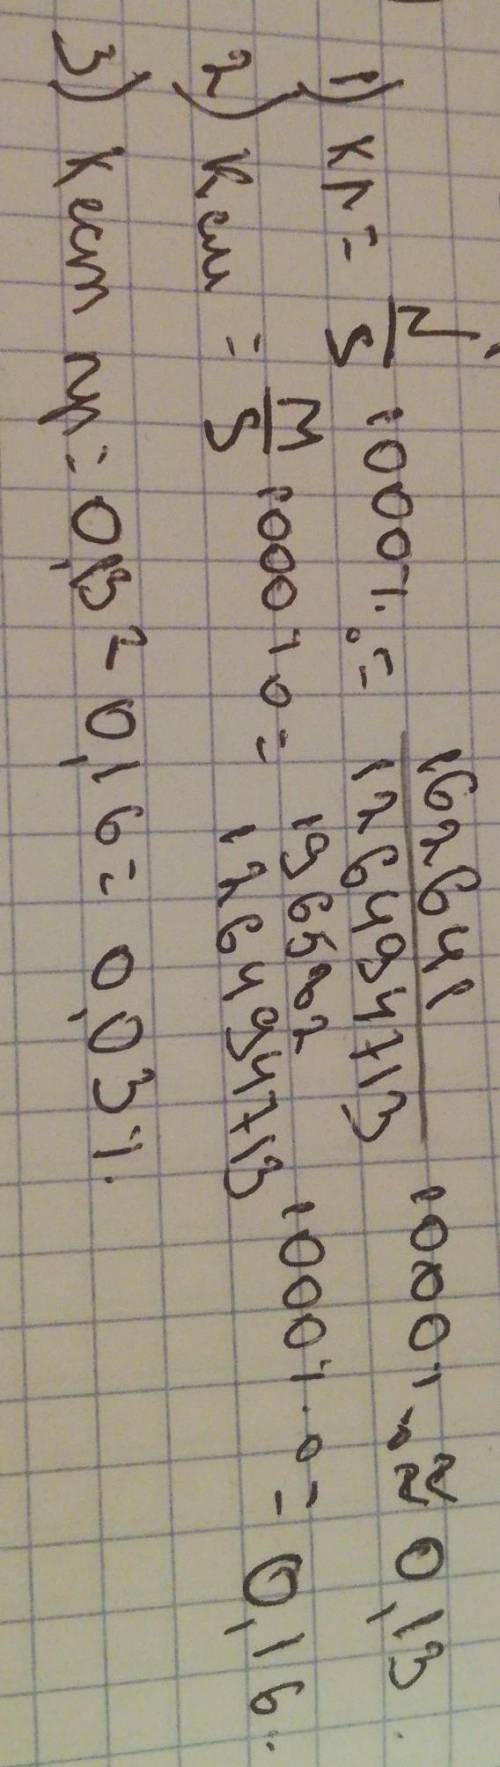 1) Кр = N/S 1000% = 162641/126494713 1000% ≈ 0,13
2) Ксм = M/S 1000% = 196582/126494713 1000% = 0,16
3) Кест пр = 0,13 - 0,16 = 0,03%